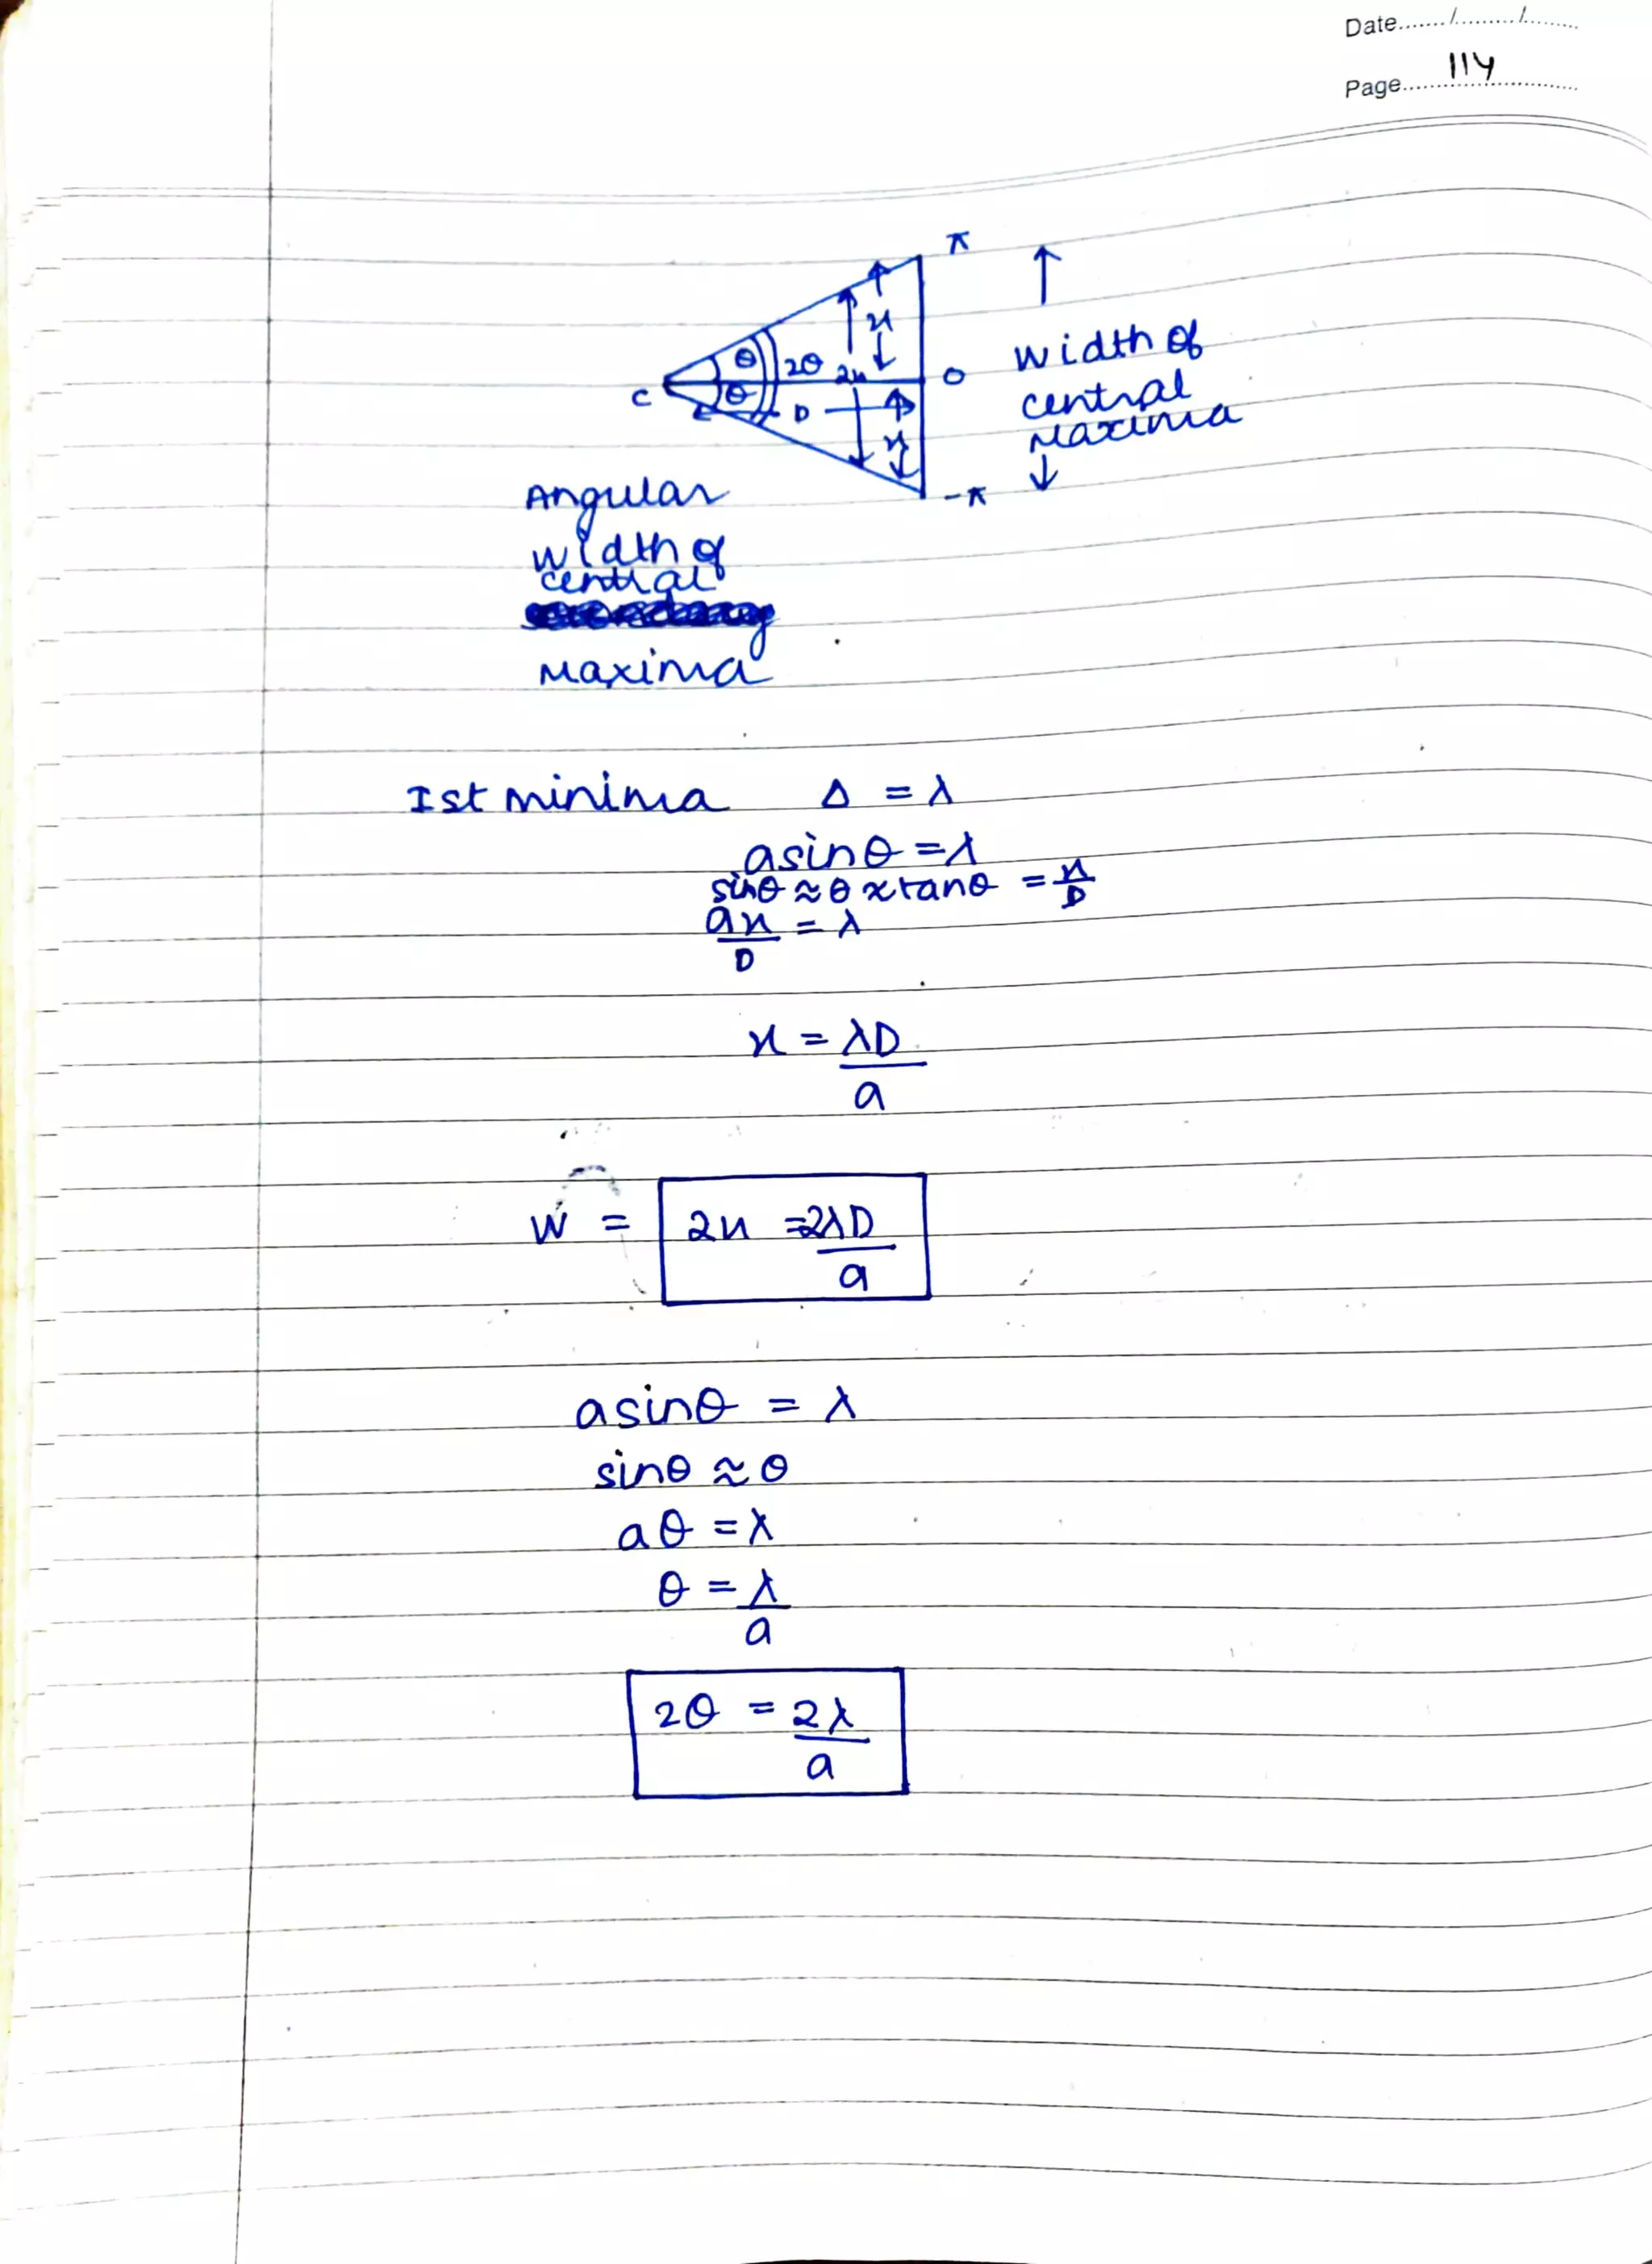 Date......./........./.........
Page......114......
π
x
θ 2θ 2x O
C θ D
x
-π
↑
width of
central
maxima
↓
Angular
width of
central
maxima
Ist minima Δ = λ
a sinθ = λ
sinθ ≈ θ ≈ tanθ = x/D
ax/D = λ
x = λD/a
W = 2x = 2λD/a
a sinθ = λ
sinθ ≈ θ
aθ = λ
θ = λ/a
2θ = 2λ/a